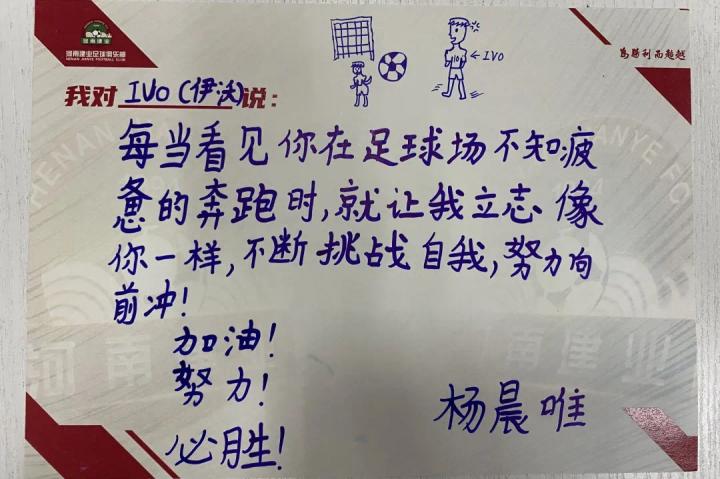 河南建业
河南建业足球俱乐部
HENAN JIANYE FOOTBALL CLUB
为胜利而超越
←IVO
我对 IVO(伊沃)说:
每当看见你在足球场不知疲
惫的奔跑时,就让我立志像
你一样,不断挑战自我,努力向
前冲!
加油!
努力!
必胜!
杨晨唯